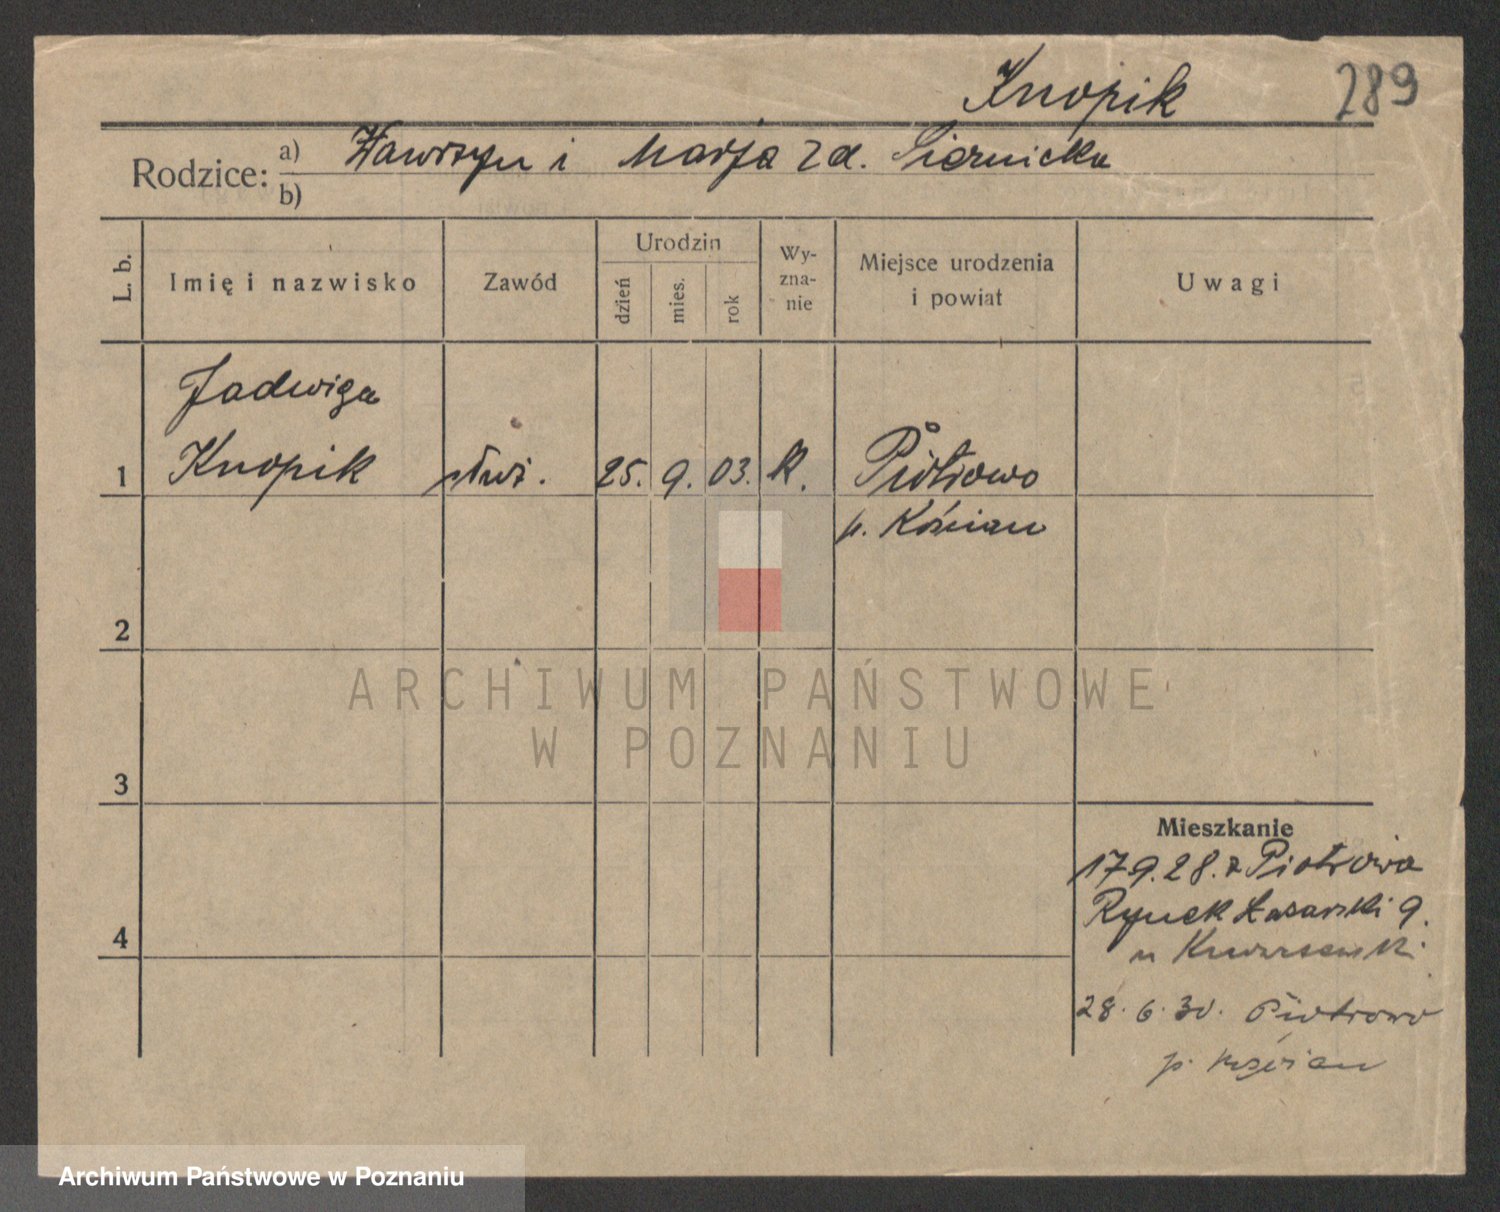 Knopik
289
Rodzice: a) Wawrzyn i Marja zd. Siernicka
b)
L. b.
Imię i nazwisko
Zawód
Urodzin
dzień
mies.
rok
Wy-
zna-
nie
Miejsce urodzenia
i powiat
Uwagi
Jadwiga
1 Knopik służ. 25. 9. 03. K. Piotrowo
p. Kościan
2
ARCHIWUM PAŃSTWOWE
W POZNANIU
3
Mieszkanie
17 9. 28. z Piotrowa
Rynek Łazarski 9.
4
u
28. 6. 30. Piotrowo
p. Kościan
Archiwum Państwowe w Poznaniu